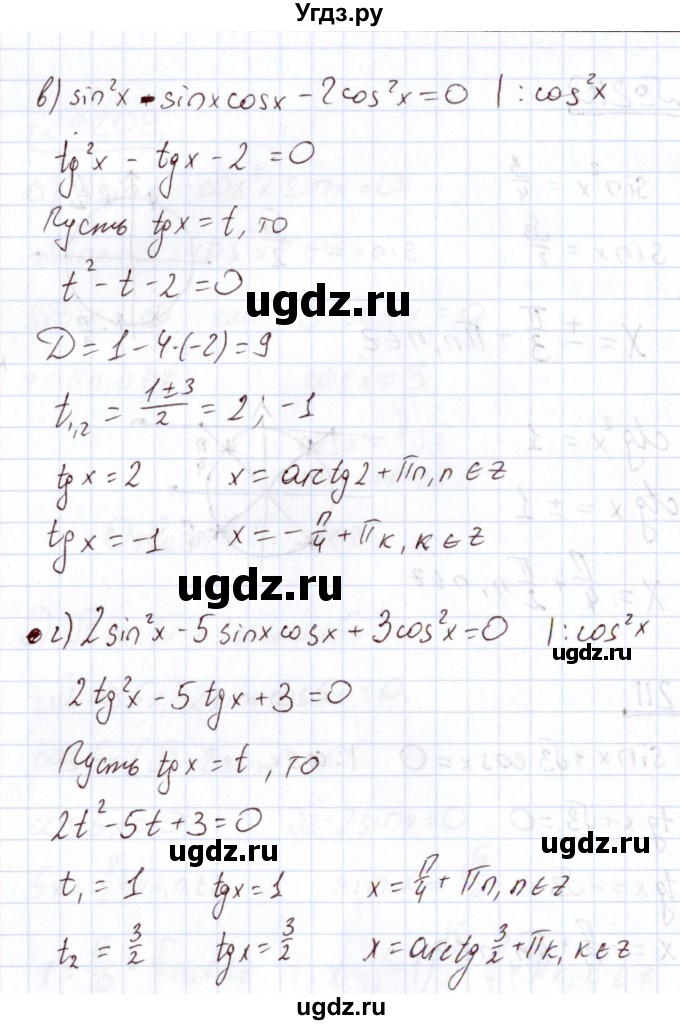 Угдз.ру
в) sin²x - sinxcosx - 2cos²x = 0 | : cos²x
tg²x - tgx - 2 = 0
Пусть tgx = t, то
t² - t - 2 = 0
ugdz.ru
D = 1 - 4·(-2) = 9
t₁,₂ = (1±3)/2 = 2; -1
tgx = 2 x = arctg2 + πn, n ∈ z
tgx = -1 x = -π/4 + πk, k ∈ z
ugdz.ru
г) 2sin²x - 5sinxcosx + 3cos²x = 0 | : cos²x
ugdz.ru
2tg²x - 5tgx + 3 = 0
Пусть tgx = t, то
2t² - 5t + 3 = 0
ugdz.ru ugdz.ru
t₁ = 1 tgx = 1 x = π/4 + πn, n ∈ z
t₂ = 3/2 tgx = 3/2 x = arctg 3/2 + πk, k ∈ z
ugdz.ru